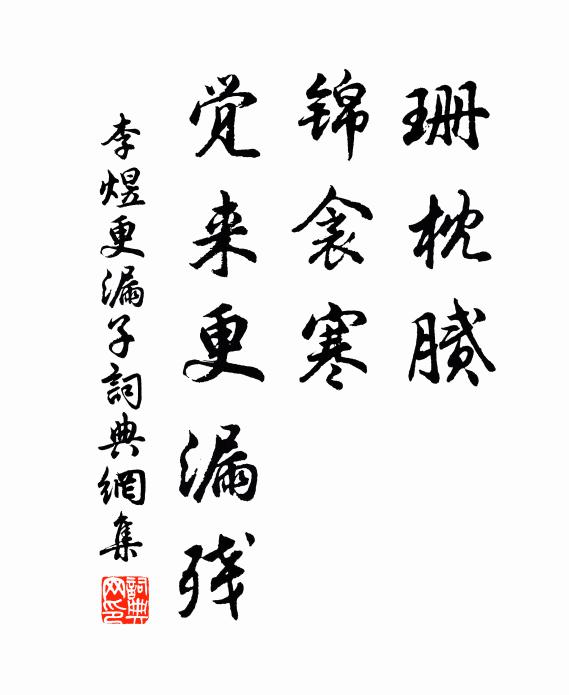 珊枕腻
锦衾寒
觉来更漏残
李煜更漏子詞典網集
詞典网印